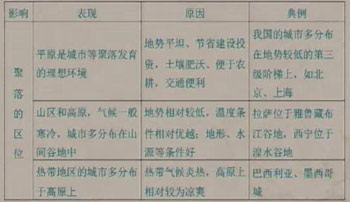 影响 表现 原因 典例
聚落的区位
平原是城市等聚落发育
的理想环境
地势平坦、节省建设投
资，土壤肥沃、便于农
耕，交通便利
我国的城市多分布
在地势较低的第三
级阶梯上，如北
京、上海
山区和高原，气候一般
寒冷，城市多分布在山
间谷地中
地势相对较低，温度条
件相对优越；地形、水
源等条件好
拉萨位于雅鲁藏布
江谷地，西宁位于
湟水谷地
热带地区的城市多分布
于高原上
热带气候炎热，高原上
相对较为凉爽
巴西利亚、墨西哥
城